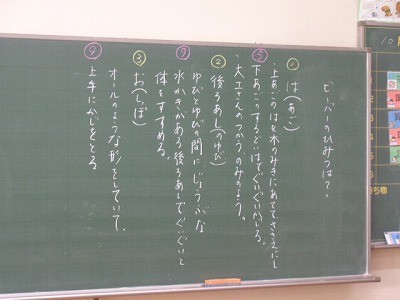 ビーバーのひみつは？
① は（あご）
・上あごのはを木のみきにあててささえにし
⑤
下あごのするどいはでぐいぐいかじる。
・大工さんのつかうのみのよう。
② 後ろあし（のゆび）
ゆびとゆびの間にじょうぶな
⑦
水かきがある後ろあしでぐいぐいと
体をすすめる。
③ お（しっぽ）
オールのような形をしていて、
⑨
上手にかじをとる
10
ち物